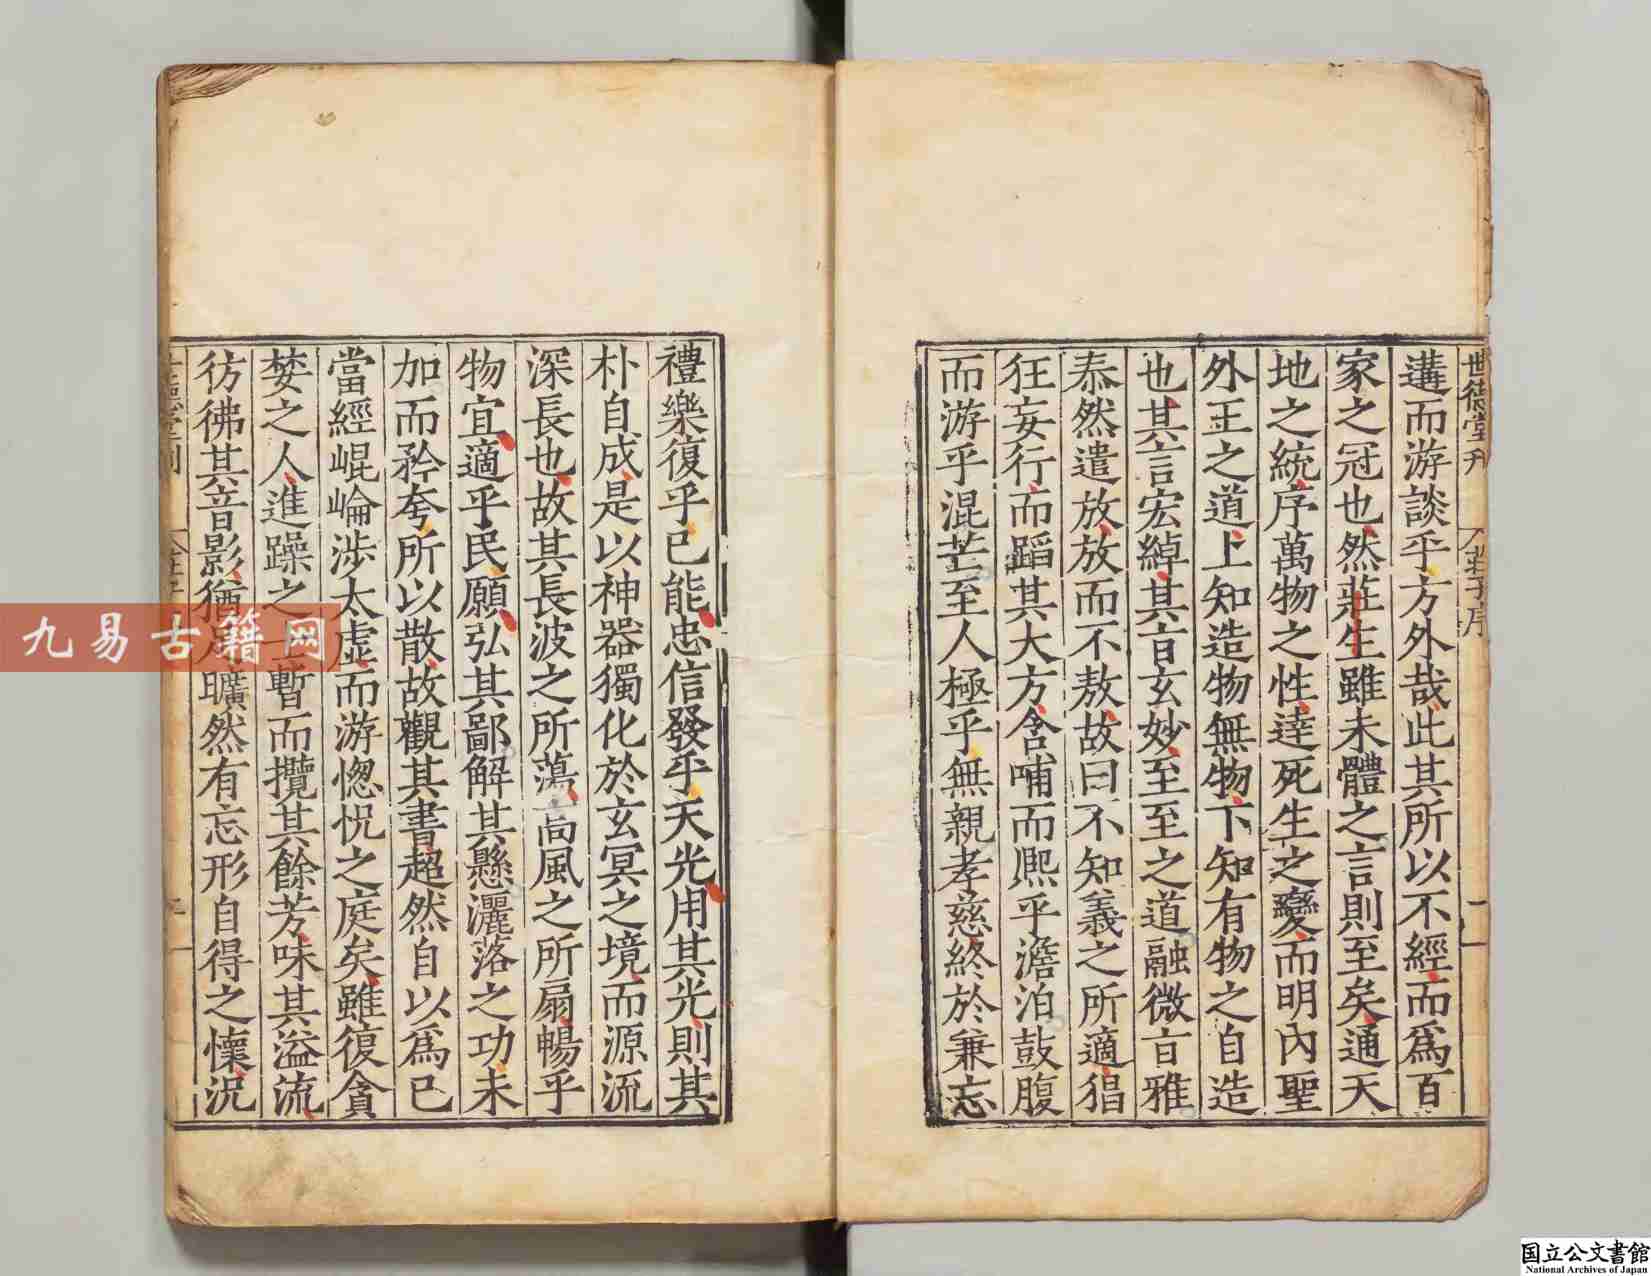 世德堂刊
莊子序
二
遘而游談乎方外哉此其所以不經而爲百
家之冠也然莊生雖未體之言則至矣通天
地之統序萬物之性達死生之變而明內聖
外王之道上知造物無物下知有物之自造
也其言宏綽其旨玄妙至至之道融微旨雅
泰然遣放放而不敖故曰不知義之所適猖
狂妄行而蹈其大方含哺而熙乎澹泊鼓腹
而游乎混芒至人極乎無親孝慈終於兼忘
禮樂復乎已能忠信發乎天光用其光則其
朴自成是以神器獨化於玄冥之境而源流
深長也故其長波之所蕩高風之所扇暢乎
物宜適乎民願弘其鄙解其懸灑落之功未
加而矜夸所以散故觀其書超然自以爲已
當經崐崘涉太虛而游惚怳之庭矣雖復貪
婪之人進躁之士暫而攬其餘芳味其溢流
彷彿其音影猶足曠然有忘形自得之懷況
九易古籍网
国立公文書館
National Archives of Japan